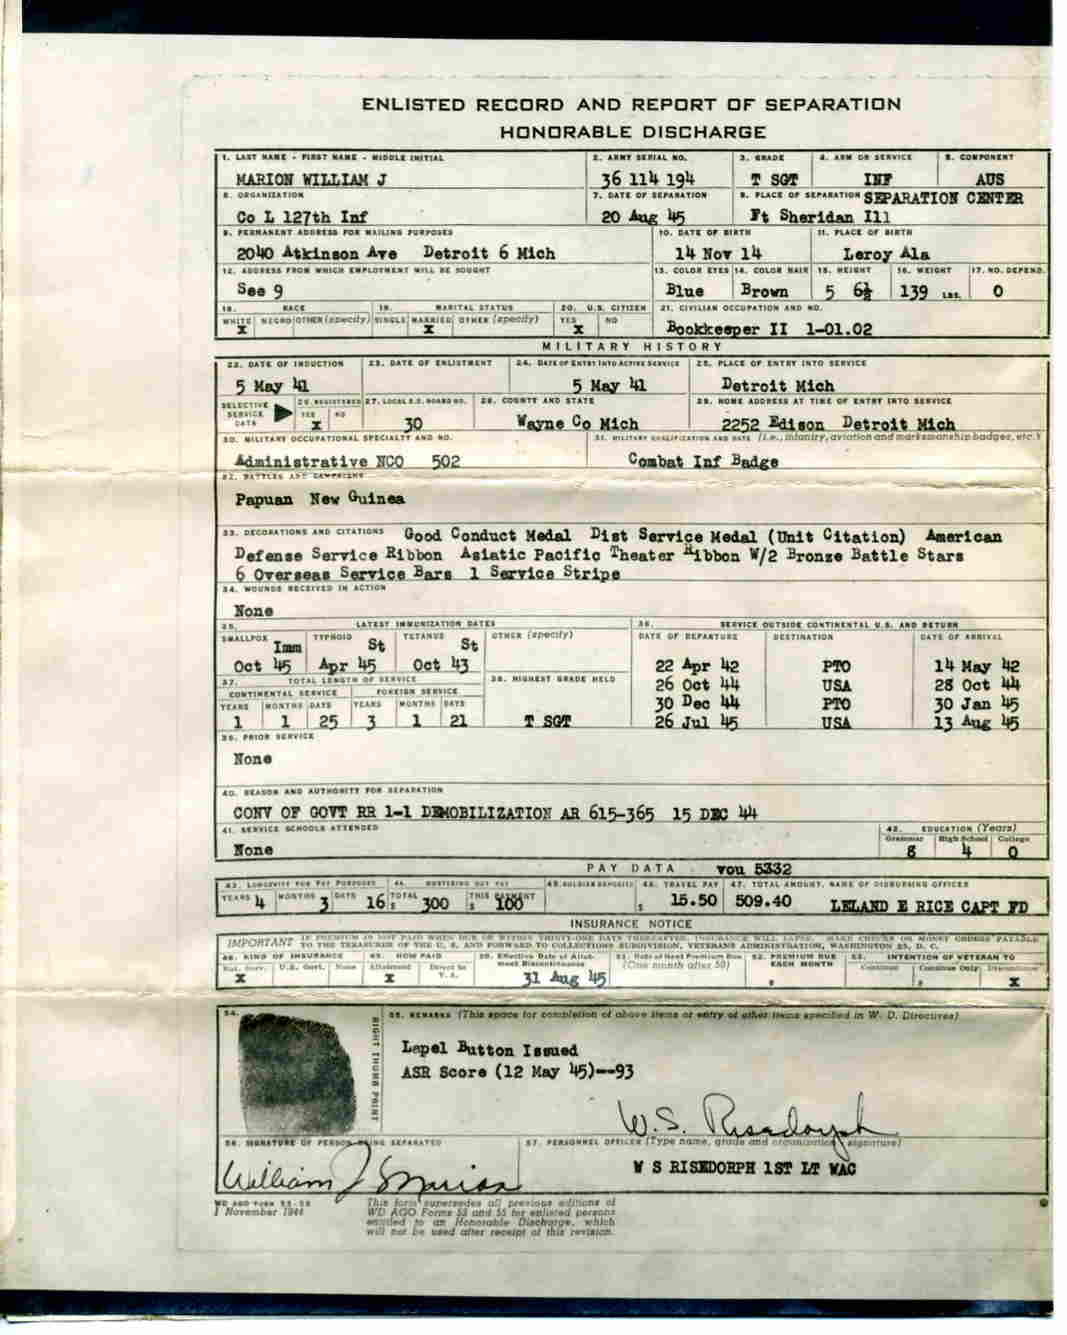 ENLISTED RECORD AND REPORT OF SEPARATION
HONORABLE DISCHARGE
1. LAST NAME - FIRST NAME - MIDDLE INITIAL 2. ARMY SERIAL NO. 3. GRADE 4. ARM OR SERVICE 5. COMPONENT
MARION WILLIAM J 36 114 194 T SGT INF AUS
6. ORGANIZATION 7. DATE OF SEPARATION 8. PLACE OF SEPARATION SEPARATION CENTER
Co L 127th Inf 20 Aug 45 Ft Sheridan Ill
9. PERMANENT ADDRESS FOR MAILING PURPOSES 10. DATE OF BIRTH 11. PLACE OF BIRTH
2040 Atkinson Ave Detroit 6 Mich 14 Nov 14 Leroy Ala
12. ADDRESS FROM WHICH EMPLOYMENT WILL BE SOUGHT 13. COLOR EYES 14. COLOR HAIR 15. HEIGHT 16. WEIGHT 17. NO. DEPEND.
See 9 Blue Brown 5 6½ 139 LBS. 0
18. RACE 19. MARITAL STATUS 20. U.S. CITIZEN 21. CIVILIAN OCCUPATION AND NO.
WHITE NEGRO OTHER (specify) SINGLE MARRIED OTHER (specify) YES NO
X X X Bookkeeper II 1-01.02
MILITARY HISTORY
22. DATE OF INDUCTION 23. DATE OF ENLISTMENT 24. DATE OF ENTRY INTO ACTIVE SERVICE 25. PLACE OF ENTRY INTO SERVICE
5 May 41 5 May 41 Detroit Mich
SELECTIVE SERVICE DATA 26. REGISTERED 27. LOCAL S.S. BOARD NO. 28. COUNTY AND STATE 29. HOME ADDRESS AT TIME OF ENTRY INTO SERVICE
YES NO
X 30 Wayne Co Mich 2252 Edison Detroit Mich
30. MILITARY OCCUPATIONAL SPECIALTY AND NO. 31. MILITARY QUALIFICATION AND DATE (i.e., infantry, aviation and marksmanship badges, etc.)
Administrative NCO 502 Combat Inf Badge
32. BATTLES AND CAMPAIGNS
Papuan New Guinea
33. DECORATIONS AND CITATIONS Good Conduct Medal Dist Service Medal (Unit Citation) American
Defense Service Ribbon Asiatic Pacific Theater Ribbon W/2 Bronze Battle Stars
6 Overseas Service Bars 1 Service Stripe
34. WOUNDS RECEIVED IN ACTION
None
35. LATEST IMMUNIZATION DATES 36. SERVICE OUTSIDE CONTINENTAL U.S. AND RETURN
SMALLPOX TYPHOID TETANUS OTHER (specify) DATE OF DEPARTURE DESTINATION DATE OF ARRIVAL
Imm St St
Oct 45 Apr 45 Oct 43 22 Apr 42 PTO 14 May 42
37. TOTAL LENGTH OF SERVICE 38. HIGHEST GRADE HELD 26 Oct 44 USA 28 Oct 44
CONTINENTAL SERVICE FOREIGN SERVICE
YEARS MONTHS DAYS YEARS MONTHS DAYS 30 Dec 44 PTO 30 Jan 45
1 1 25 3 1 21 T SGT 26 Jul 45 USA 13 Aug 45
39. PRIOR SERVICE
None
40. REASON AND AUTHORITY FOR SEPARATION
CONV OF GOVT RR 1-1 DEMOBILIZATION AR 615-365 15 DEC 44
41. SERVICE SCHOOLS ATTENDED 42. EDUCATION (Years)
Grammar High School College
None 8 4 0
PAY DATA vou 5332
43. LONGEVITY FOR PAY PURPOSES 44. MUSTERING OUT PAY 45. SOLDIER DEPOSITS 46. TRAVEL PAY 47. TOTAL AMOUNT, NAME OF DISBURSING OFFICER
YEARS 4 MONTHS 3 DAYS 16 TOTAL $ 300 THIS PAYMENT $ 100 $ 15.50 509.40 LELAND E RICE CAPT FD
INSURANCE NOTICE
IMPORTANT IF PREMIUM IS NOT PAID WHEN DUE OR WITHIN THIRTY-ONE DAYS THEREAFTER, INSURANCE WILL LAPSE. MAKE CHECKS OR MONEY ORDERS PAYABLE
TO THE TREASURER OF THE U. S. AND FORWARD TO COLLECTIONS SUBDIVISION, VETERANS ADMINISTRATION, WASHINGTON 25, D. C.
48. KIND OF INSURANCE 49. HOW PAID 50. Effective Date of Allotment Discontinuance 51. Date of Next Premium Due (One month after 50) 52. PREMIUM DUE EACH MONTH 53. INTENTION OF VETERAN TO
Nat. Serv. U.S. Govt. None Allotment Direct to V. A. Continue Continue Only Discontinue
X X 31 Aug 45 $ $ X
54. 55. REMARKS (This space for completion of above items or entry of other items specified in W. D. Directives)
RIGHT THUMB PRINT
Lapel Button Issued
ASR Score (12 May 45)--93
W. S. Risedorph
56. SIGNATURE OF PERSON BEING SEPARATED 57. PERSONNEL OFFICER (Type name, grade and organization - signature)
William J Marion W S RISEDORPH 1ST LT WAC
WD AGO FORM 53-55
1 November 1944
This form supersedes all previous editions of
WD AGO Forms 53 and 55 for enlisted persons
entitled to an Honorable Discharge, which
will not be used after receipt of this revision.